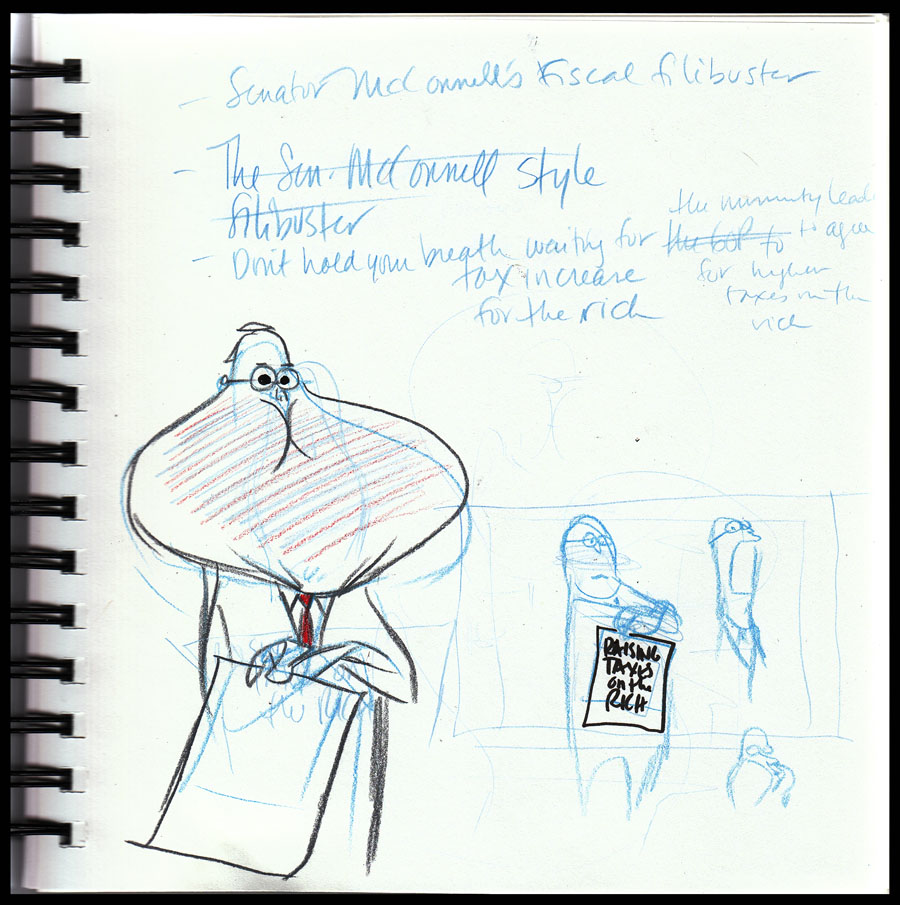 - Senator McConnell's Fiscal filibuster
- The Sen. McConnell style
filibuster
- Don't hold your breath waiting for the GOP to
tax increase
for the rich
the minority lead
to agree
for higher
taxes on the
rich
the Rich
RAISING
TAXES
on the
RICH